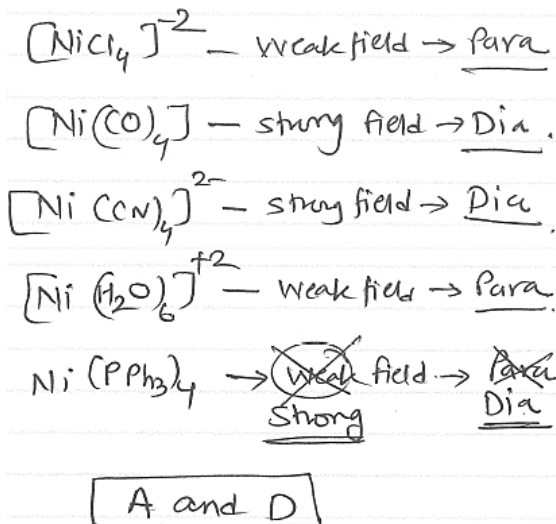 [NiCl4]-2 – weak field → Para
[Ni(CO)4] – strong field → Dia.
[Ni(CN)4]2- – strong field → Dia.
[Ni(H2O)6]+2 – weak field → Para.
Ni(PPh3)4 → weak field → Para
Strong Dia
A and D